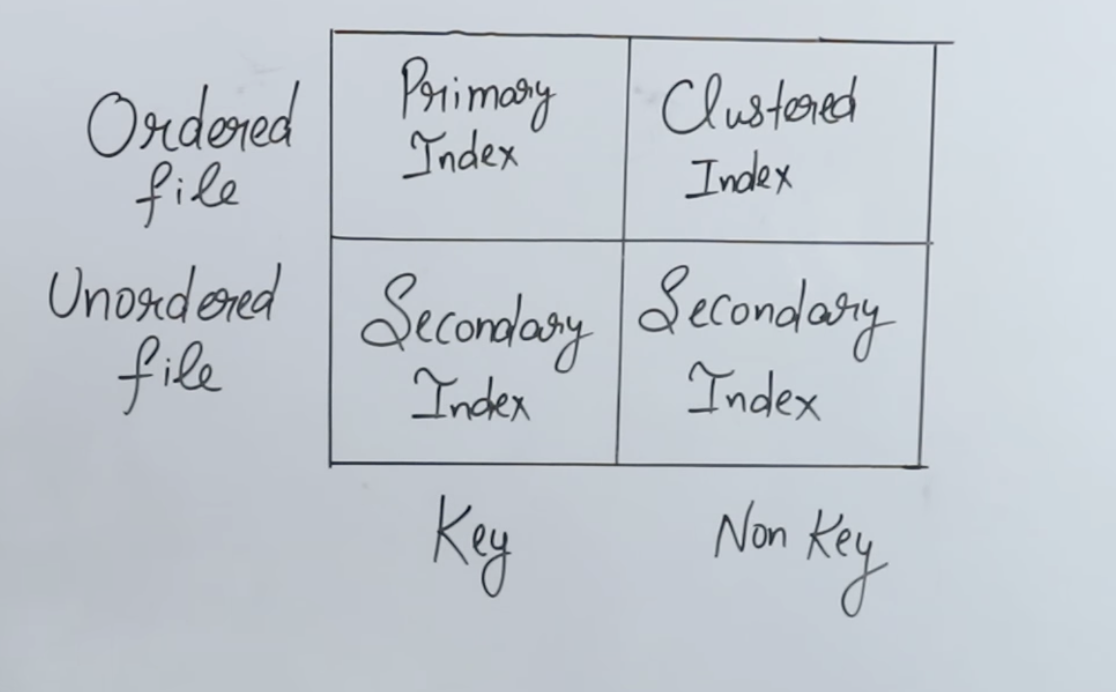 Ordered
file
Primary
Index
Clustered
Index
Unordered
file
Secondary
Index
Secondary
Index
Key
Non Key